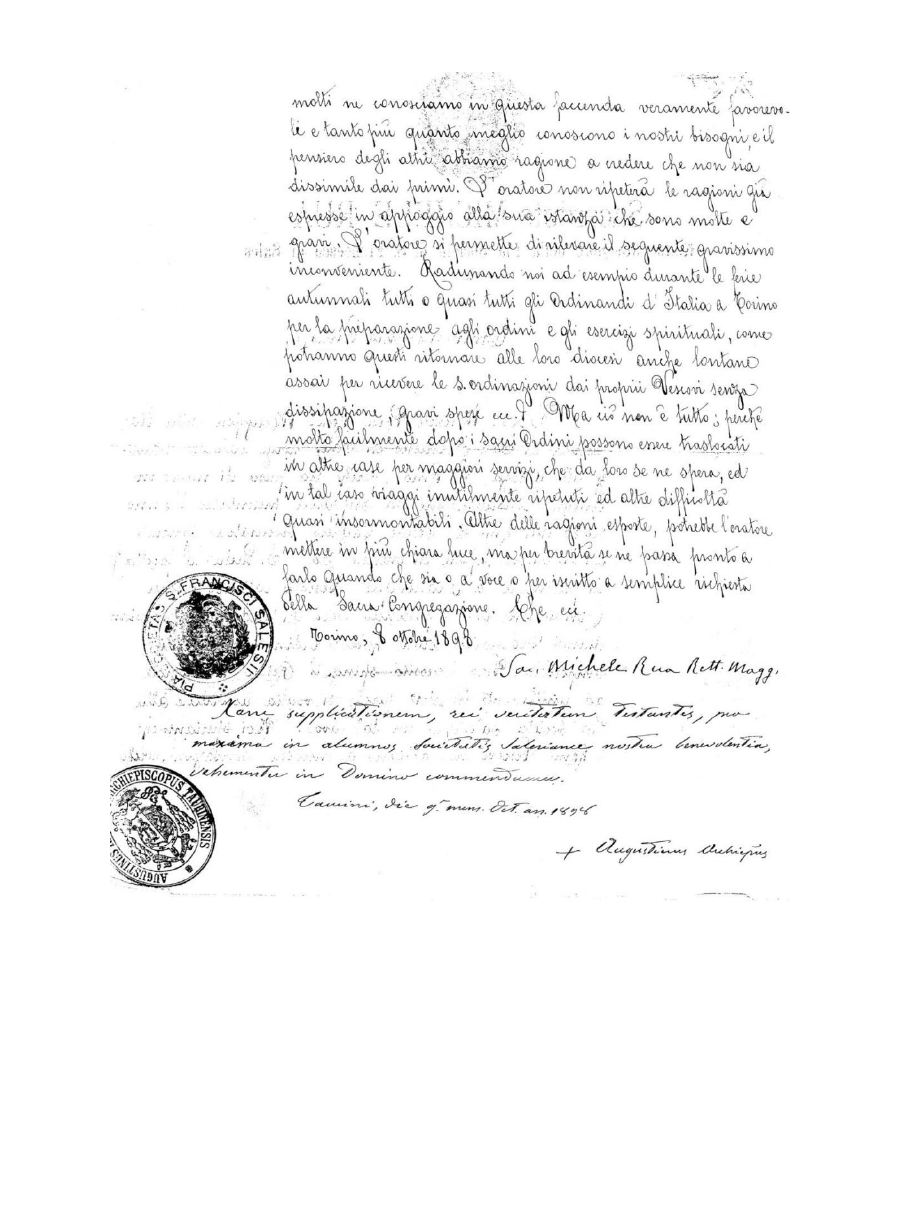 molti ne conosciamo in questa faccenda veramente favorevo-
li e tanto più quanto meglio conoscono i nostri bisogni, e il
pensiero degli altri abbiamo ragione a credere che non sia
dissimile dai primi. L'oratore non ripeterà le ragioni già
espresse in appoggio alla sua istanza che sono molte e
gravi. L'oratore si permette di rilevare il seguente gravissimo
inconveniente. Radunando noi ad esempio durante le ferie
autunnali tutti o quasi tutti gli Ordinandi d'Italia a Torino
per la preparazione agli ordini e gli esercizi spirituali, come
potranno questi ritornare alle loro diocesi anche lontane
assai per ricevere le s. ordinazioni dai proprii Vescovi senza
dissipazione, gravi spese ecc.? Ma ciò non è tutto; perchè
molto facilmente dopo i sacri Ordini possono essere traslocati
in altre case per maggiori servizi, che da loro se ne spera, ed
in tal caso viaggi inutilmente ripetuti ed altre difficoltà
quasi insormontabili. Altre delle ragioni esposte, potrebbe l'oratore
mettere in più chiara luce, ma per brevità se ne passa pronto a
farlo quando che sia o a voce o per iscritto a semplice richiesta
della Sacra Congregazione. Che ecc.
Torino, 8 ottobre 1898
Sac. Michele Rua Rett. Magg.
PIA SOCIETAS S. FRANCISCI SALESII
Hanc supplicationem, rei veritatem testantes, pro
maxima in alumnos Societatis Salesianae nostra benevolentia,
vehementer in Domino commendamus.
Taurini, die 9 mens. Oct. an. 1898
+ Augustinus Archiepus
AUGUSTINUS ARCHIEPISCOPUS TAURINENSIS